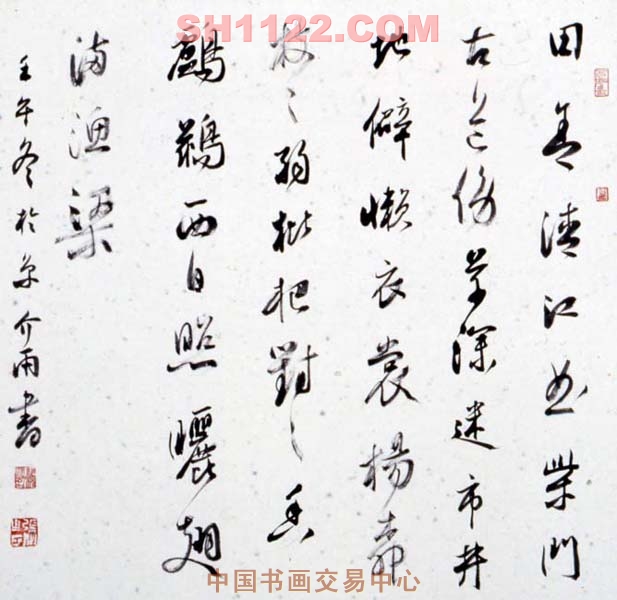 SH1122.COM
田舍清江曲柴門
古道傍草深迷市井
地僻懶衣裳楊柳
枝々弱枇杷對々香
鸕鷀西日照曬翅
滿漁梁
壬午冬於京介雨書
中国书画交易中心